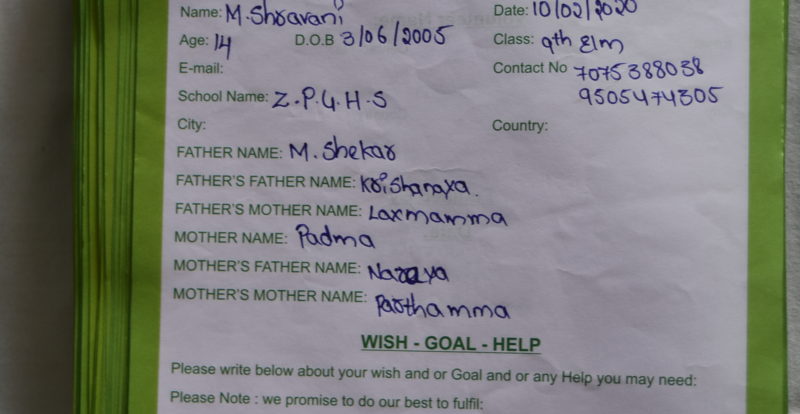 Name: M. Shravani Date: 10/02/2020
Age: 14 D.O.B 3/06/2005 Class: 9th E/m
E-mail: Contact No 7075388038
School Name: Z.P.G.H.S 9505474305
City: Country:
FATHER NAME: M. Shekar
FATHER'S FATHER NAME: Krishanaya.
FATHER'S MOTHER NAME: Laxmamma
MOTHER NAME: Padma
MOTHER'S FATHER NAME: Naraya
MOTHER'S MOTHER NAME: Parthamma
WISH - GOAL - HELP
Please write below about your wish and or Goal and or any Help you may need:
Please Note : we promise to do our best to fulfil: